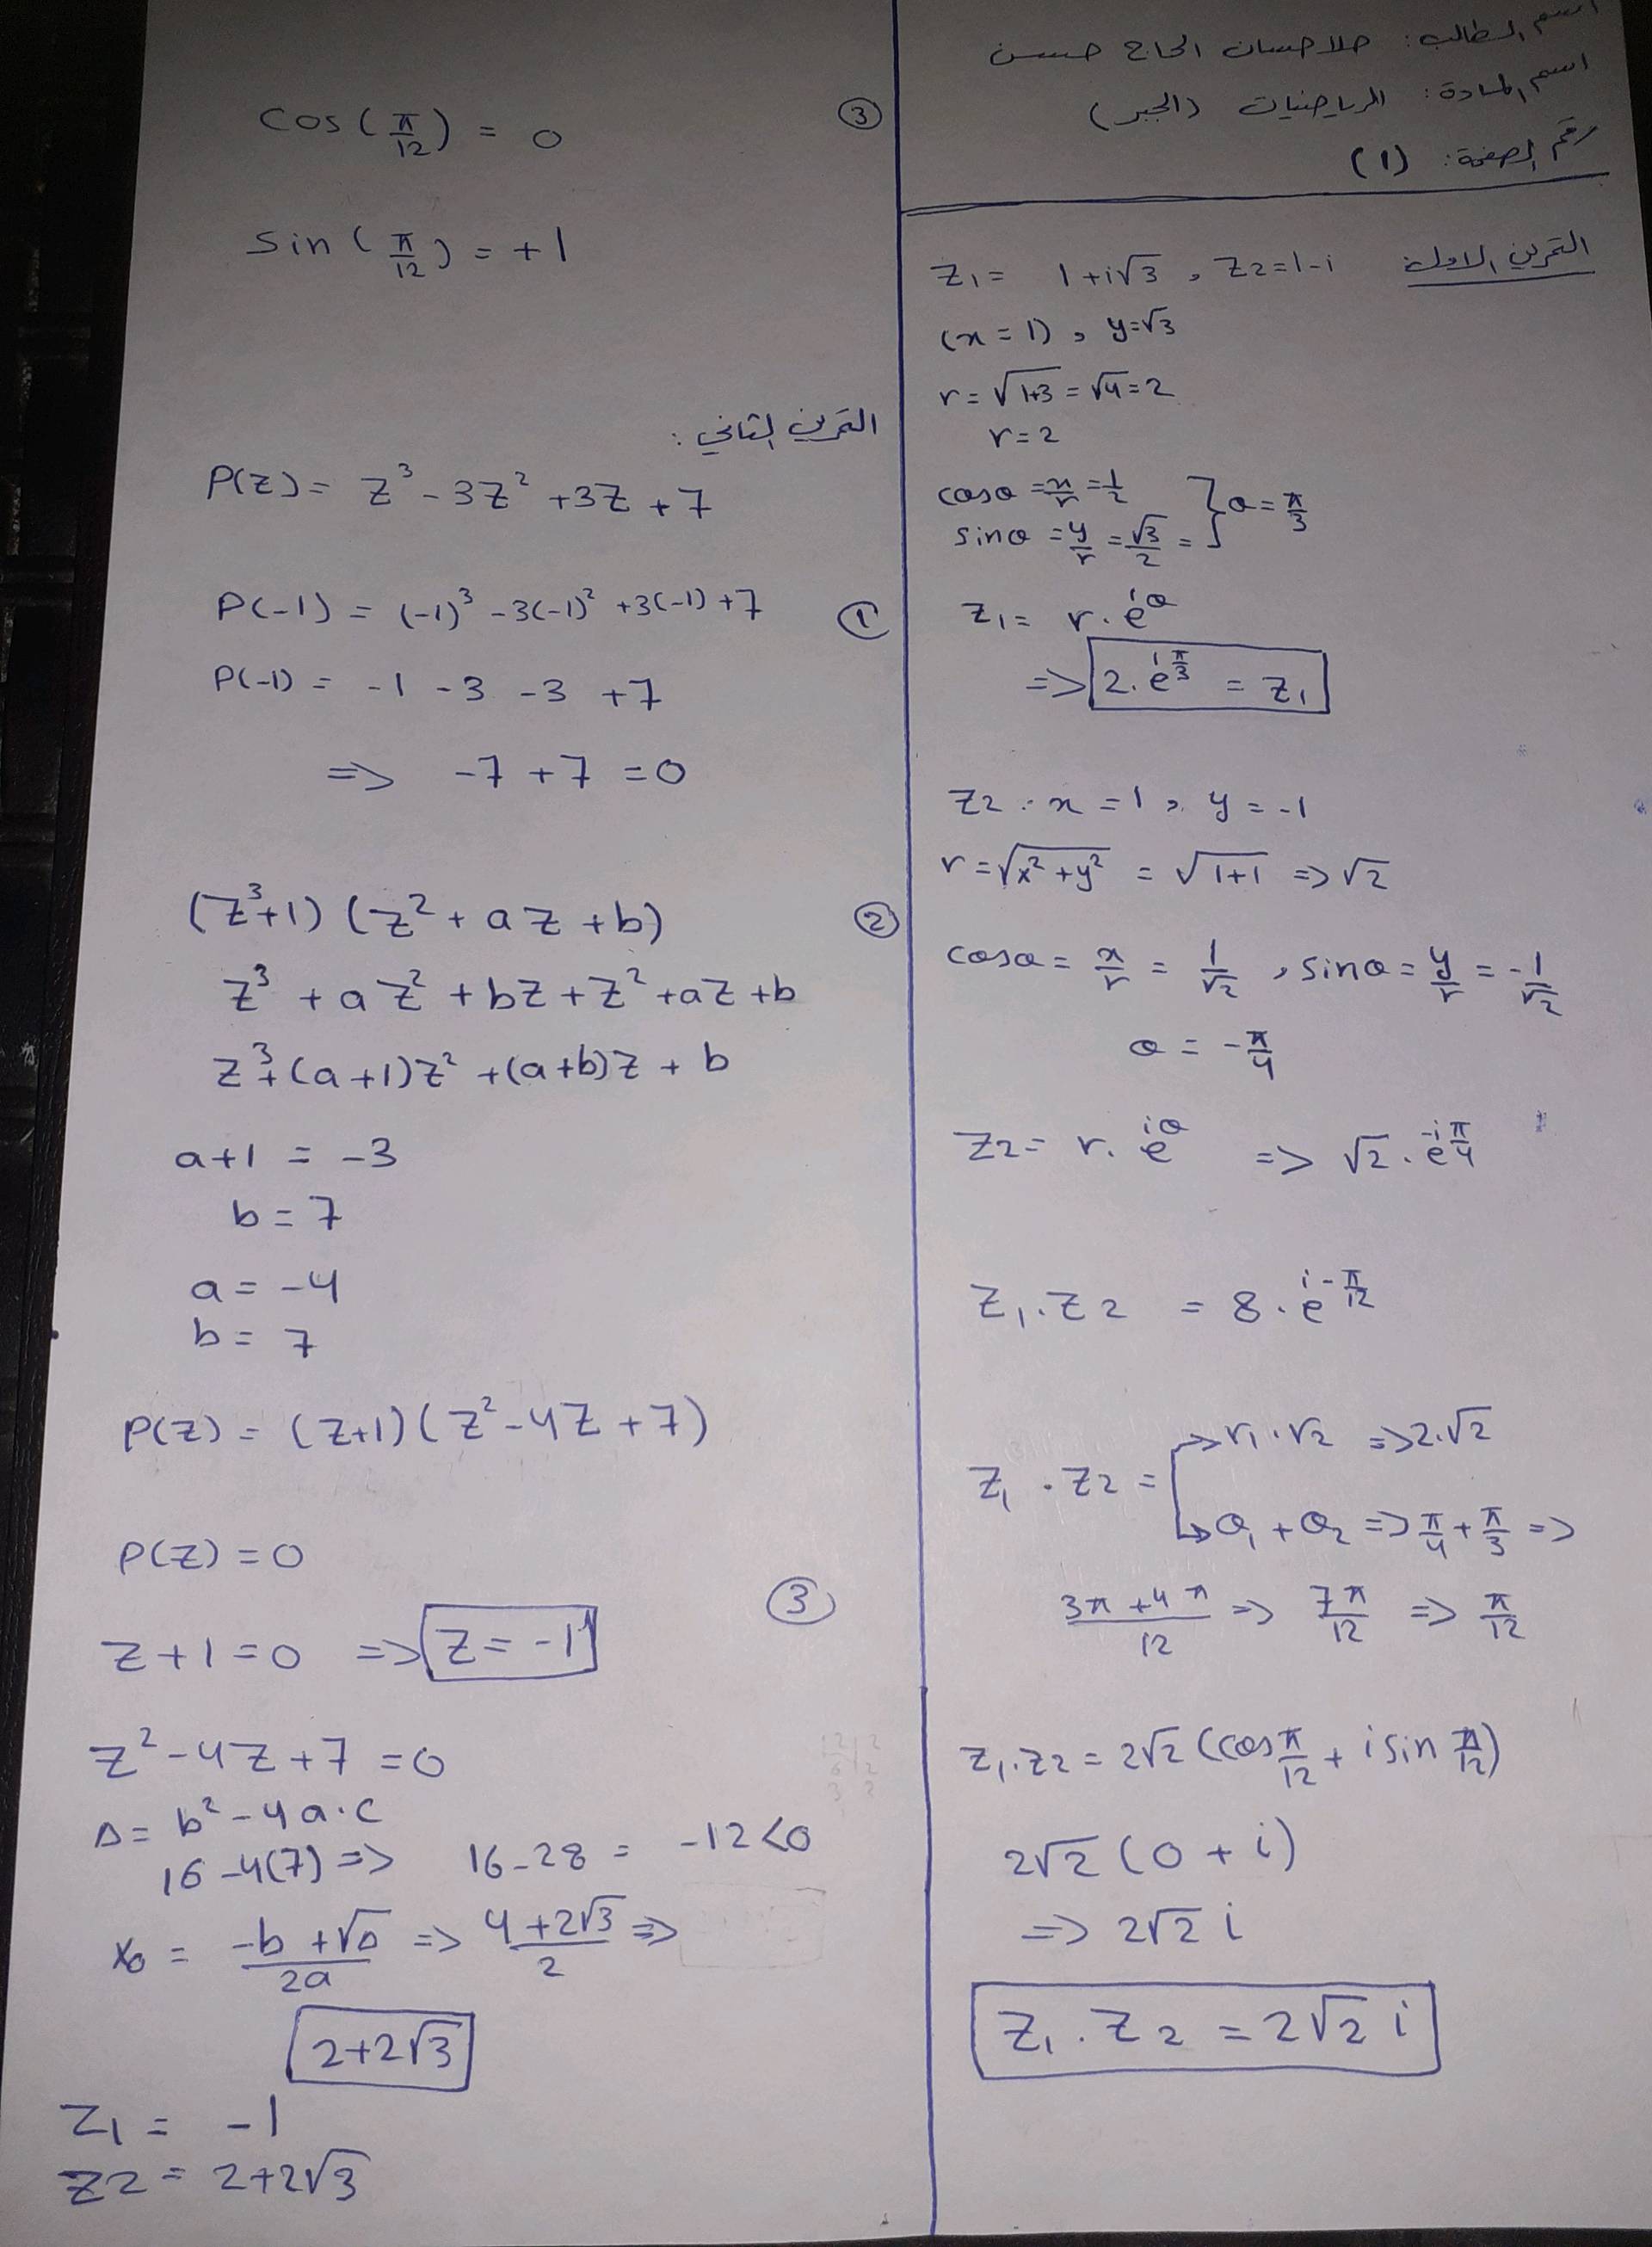 اسم الطالب: حلا حسان الحاج حسن
اسم المادة: الرياضيات (الجبر)
رقم الصفحة: (1)
التمرين الاول:
Z₁ = 1+i√3 , Z2=1-i
(x = 1) , y=√3
r = √1+3 = √4 = 2
r = 2
cosθ = x/r = 1/2 } θ = π/3
sinθ = y/r = √3/2 =
Z₁ = r.e^iθ
=> 2.e^iπ/3 = Z₁
Z2 : x = 1 , y = -1
r = √x²+y² = √1+1 => √2
cosθ = x/r = 1/√2 , sinθ = y/r = -1/√2
θ = -π/4
Z2 = r.e^iθ => √2.e^-iπ/4
Z₁.Z2 = 8.e^i-π/12
Z₁ . Z2 = → r₁.r2 => 2.√2
↳ θ₁ + θ2 => π/4 + π/3 =>
3π+4π/12 => 7π/12 => π/12
Z₁.Z2 = 2√2 (cos π/12 + i sin π/12)
2√2 (0 + i)
=> 2√2 i
Z₁ . Z2 = 2√2 i
③
cos(π/12) = 0
sin(π/12) = +1
التمرين الثاني:
P(Z) = Z³ - 3Z² + 3Z + 7
① P(-1) = (-1)³ - 3(-1)² + 3(-1) + 7
P(-1) = -1 - 3 - 3 + 7
=> -7 + 7 = 0
② (Z³+1) (Z² + aZ + b)
Z³ + aZ² + bZ + Z² + aZ + b
Z³ + (a+1)Z² + (a+b)Z + b
a+1 = -3
b = 7
a = -4
b = 7
P(Z) = (Z+1) (Z² - 4Z + 7)
P(Z) = 0
③
Z + 1 = 0 => Z = -1
Z² - 4Z + 7 = 0
Δ = b² - 4a.c
16 - 4(7) => 16 - 28 = -12 < 0
= -b + √Δ/2a => 4 + 2√3/2 =>
2+2√3
Z₁ = -1
Z2 = 2+2√3